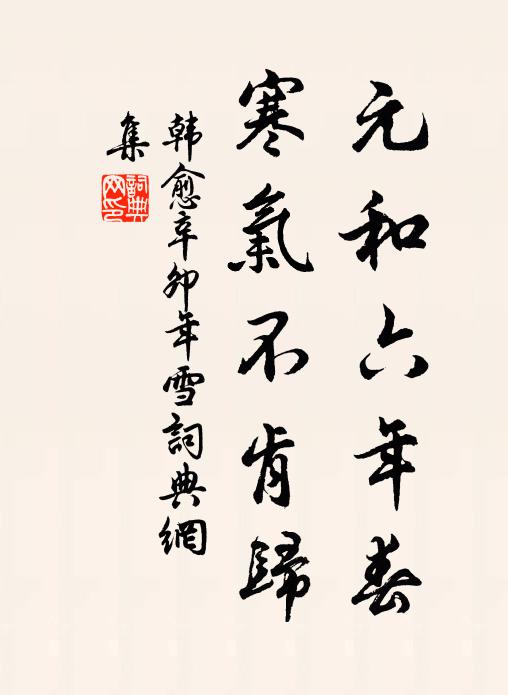 元和六年春
寒氣不肯歸
韓愈辛卯年雪詞典網
集
詞典
网印